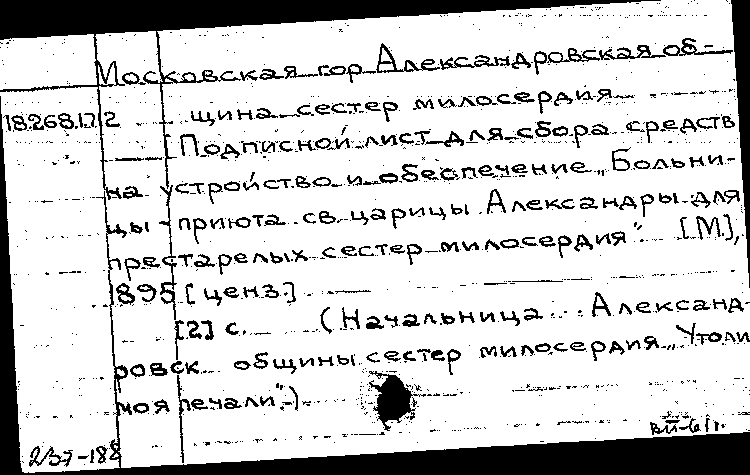 Московская гор Александровская об-
18.268.17.2 щина сестер милосердия
[Подписной лист для сбора средств
на устройство и обеспечение „Больни-
цы-приюта св. царицы Александры для
престарелых сестер милосердия". [М.],
1895 [ценз.]
[2] с. (Начальница... Александ-
ровск. общины сестер милосердия „Утоли
моя печали".-).
2/37-188